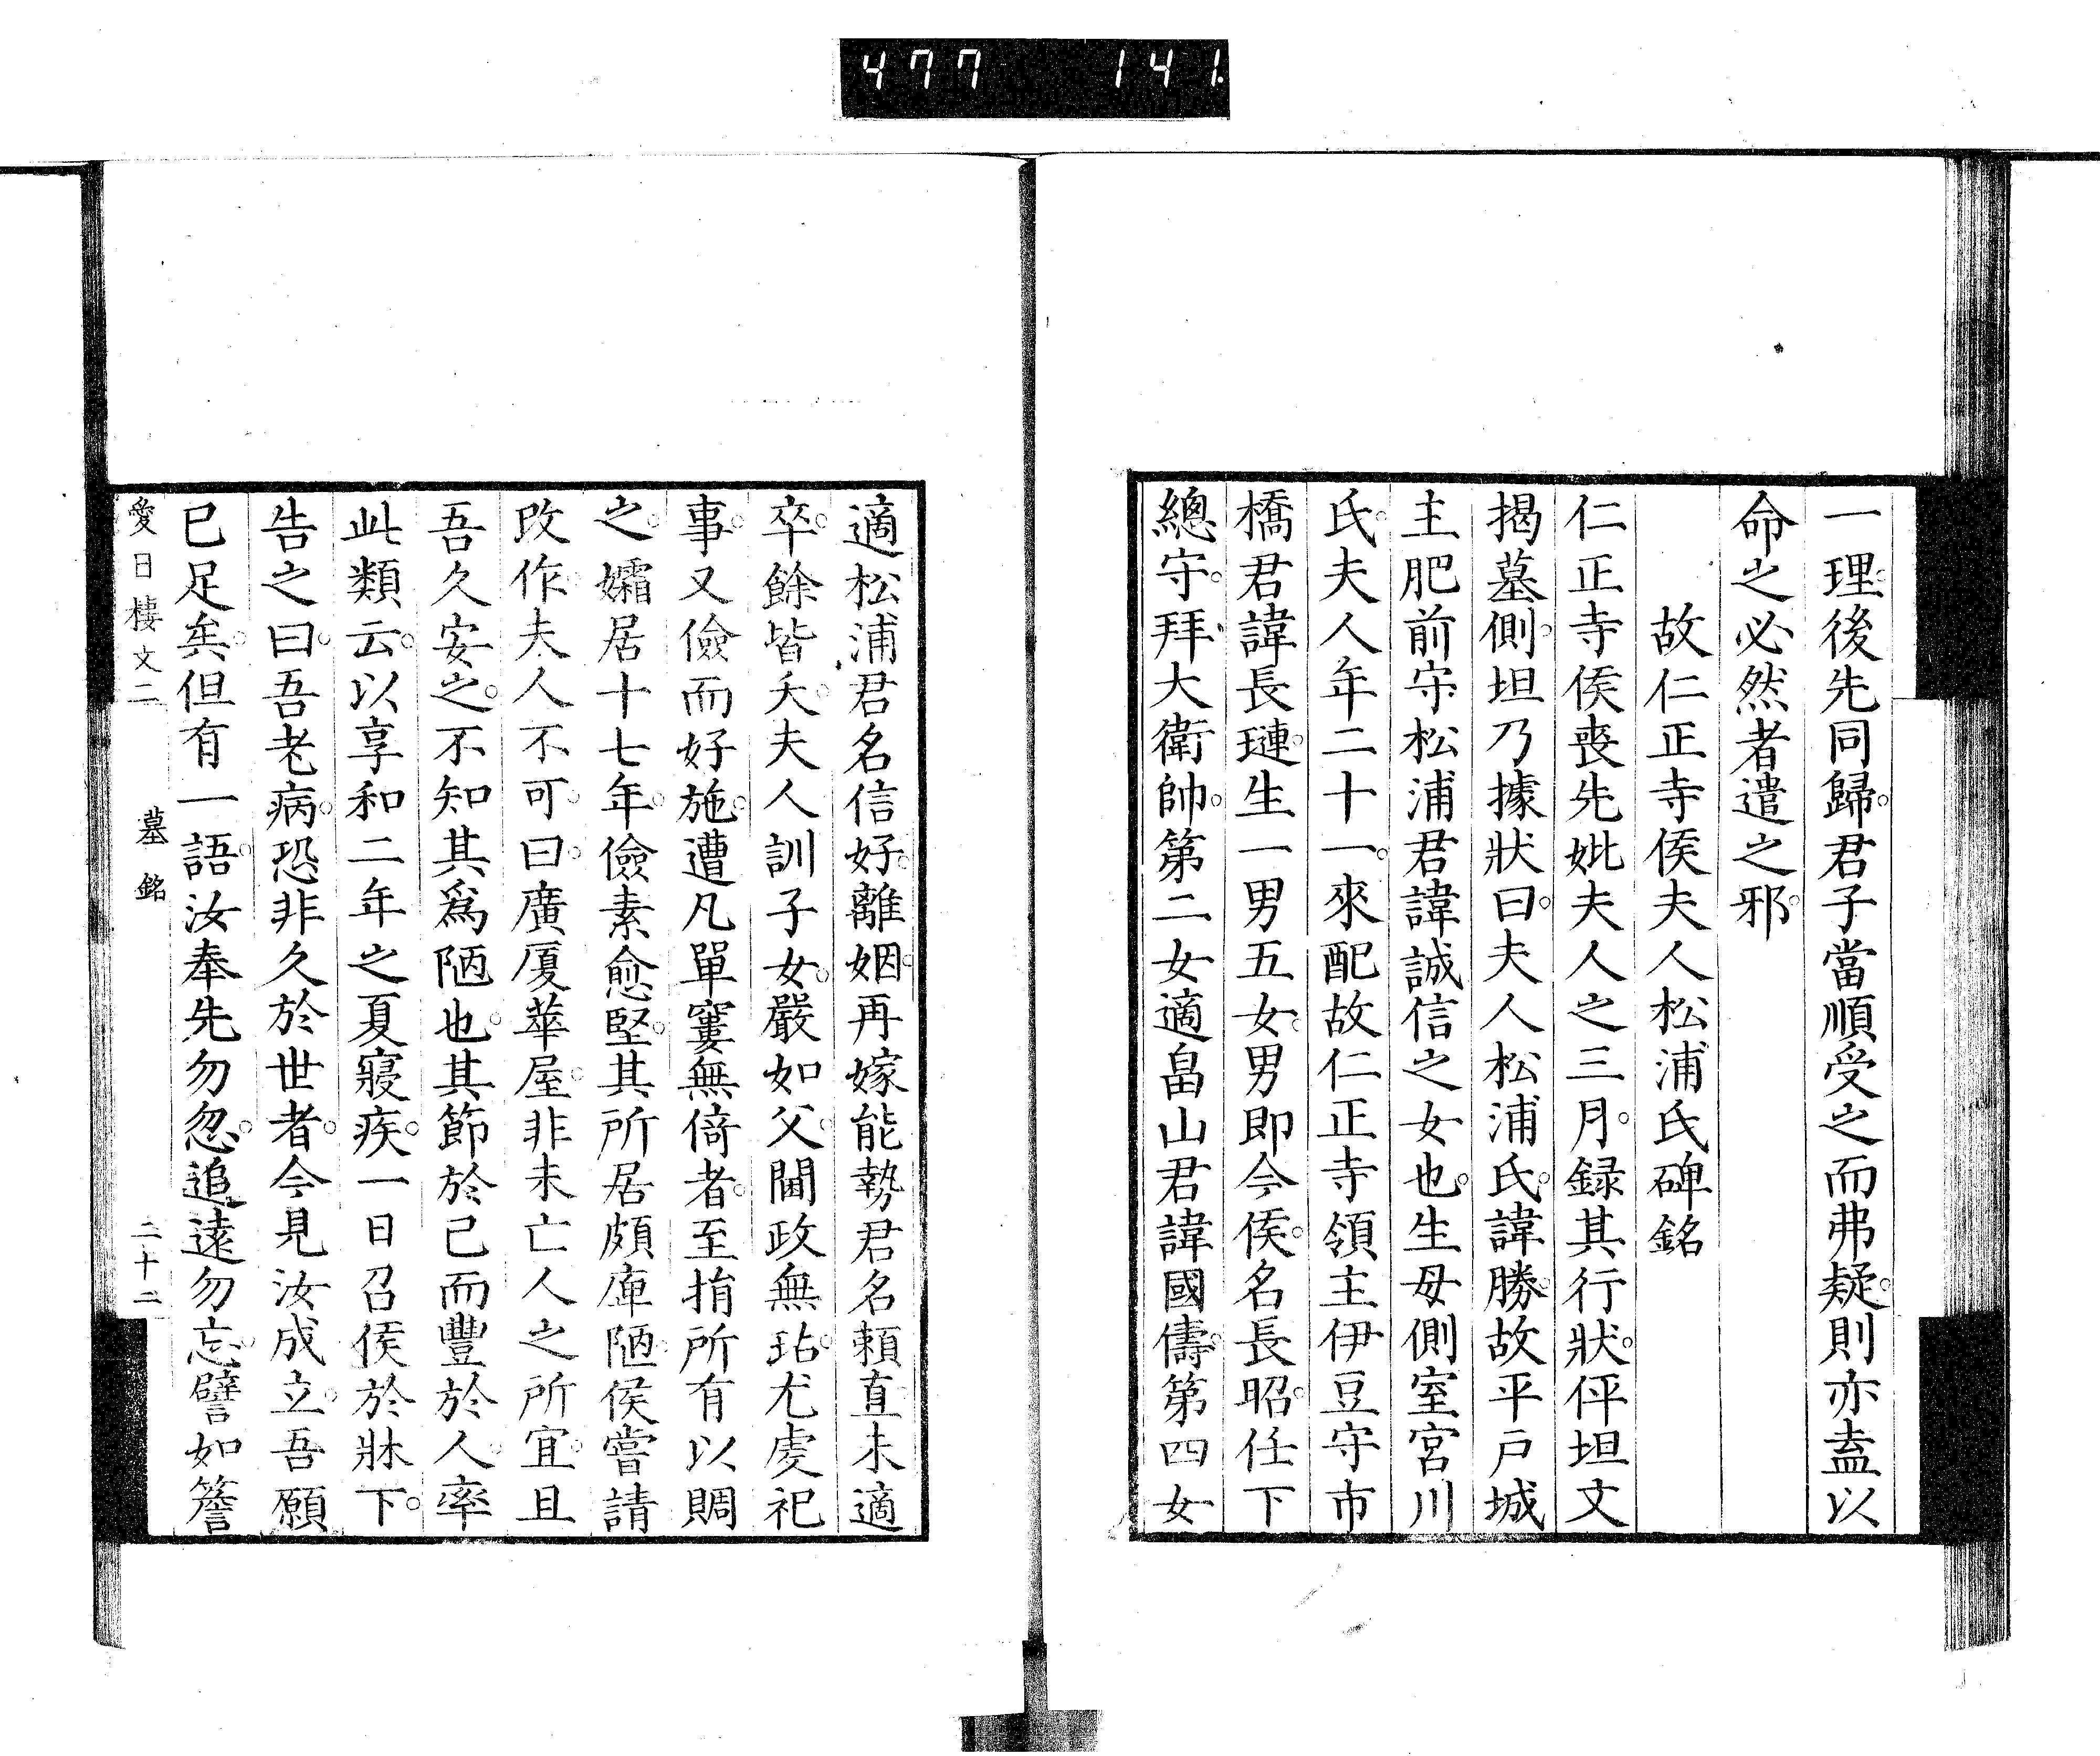 477 141.
一理後先同歸。君子當順受之而弗疑。則亦盍以
命之必然者遣之邪。
故仁正寺侯夫人松浦氏碑銘
仁正寺侯喪先妣夫人之三月。録其行狀。伻坦文
揭墓側。坦乃據狀曰。夫人松浦氏。諱勝。故平戸城
主肥前守松浦君諱誠信之女也。生母側室宮川
氏。夫人年二十一。來配故仁正寺領主伊豆守市
橋君諱長璉。生一男五女。男即今侯。名長昭。任下
總守。拜大衛帥。第二女適畠山君諱國儔。第四女
適松浦君名信好。離姻。再嫁能勢君名頼直。未適
卒。餘皆夭。夫人訓子女。嚴如父。閫政無玷。尤虔祀
事。又儉而好施。遭凡單窶無倚者。至捐所有以賙
之。孀居十七年。儉素愈堅。其所居頗庳陋。侯嘗請
改作。夫人不可。曰。廣厦華屋。非未亡人之所宜。且
吾久安之。不知其爲陋也。其節於己而豐於人。率
此類云。以享和二年之夏寢疾。一日召侯於牀下。
告之曰。吾老病。恐非久於世者。今見汝成立。吾願
已足矣。但有一語。汝奉先勿忽。追遠勿忘。譬如簷
愛日棲文二 墓銘 二十二